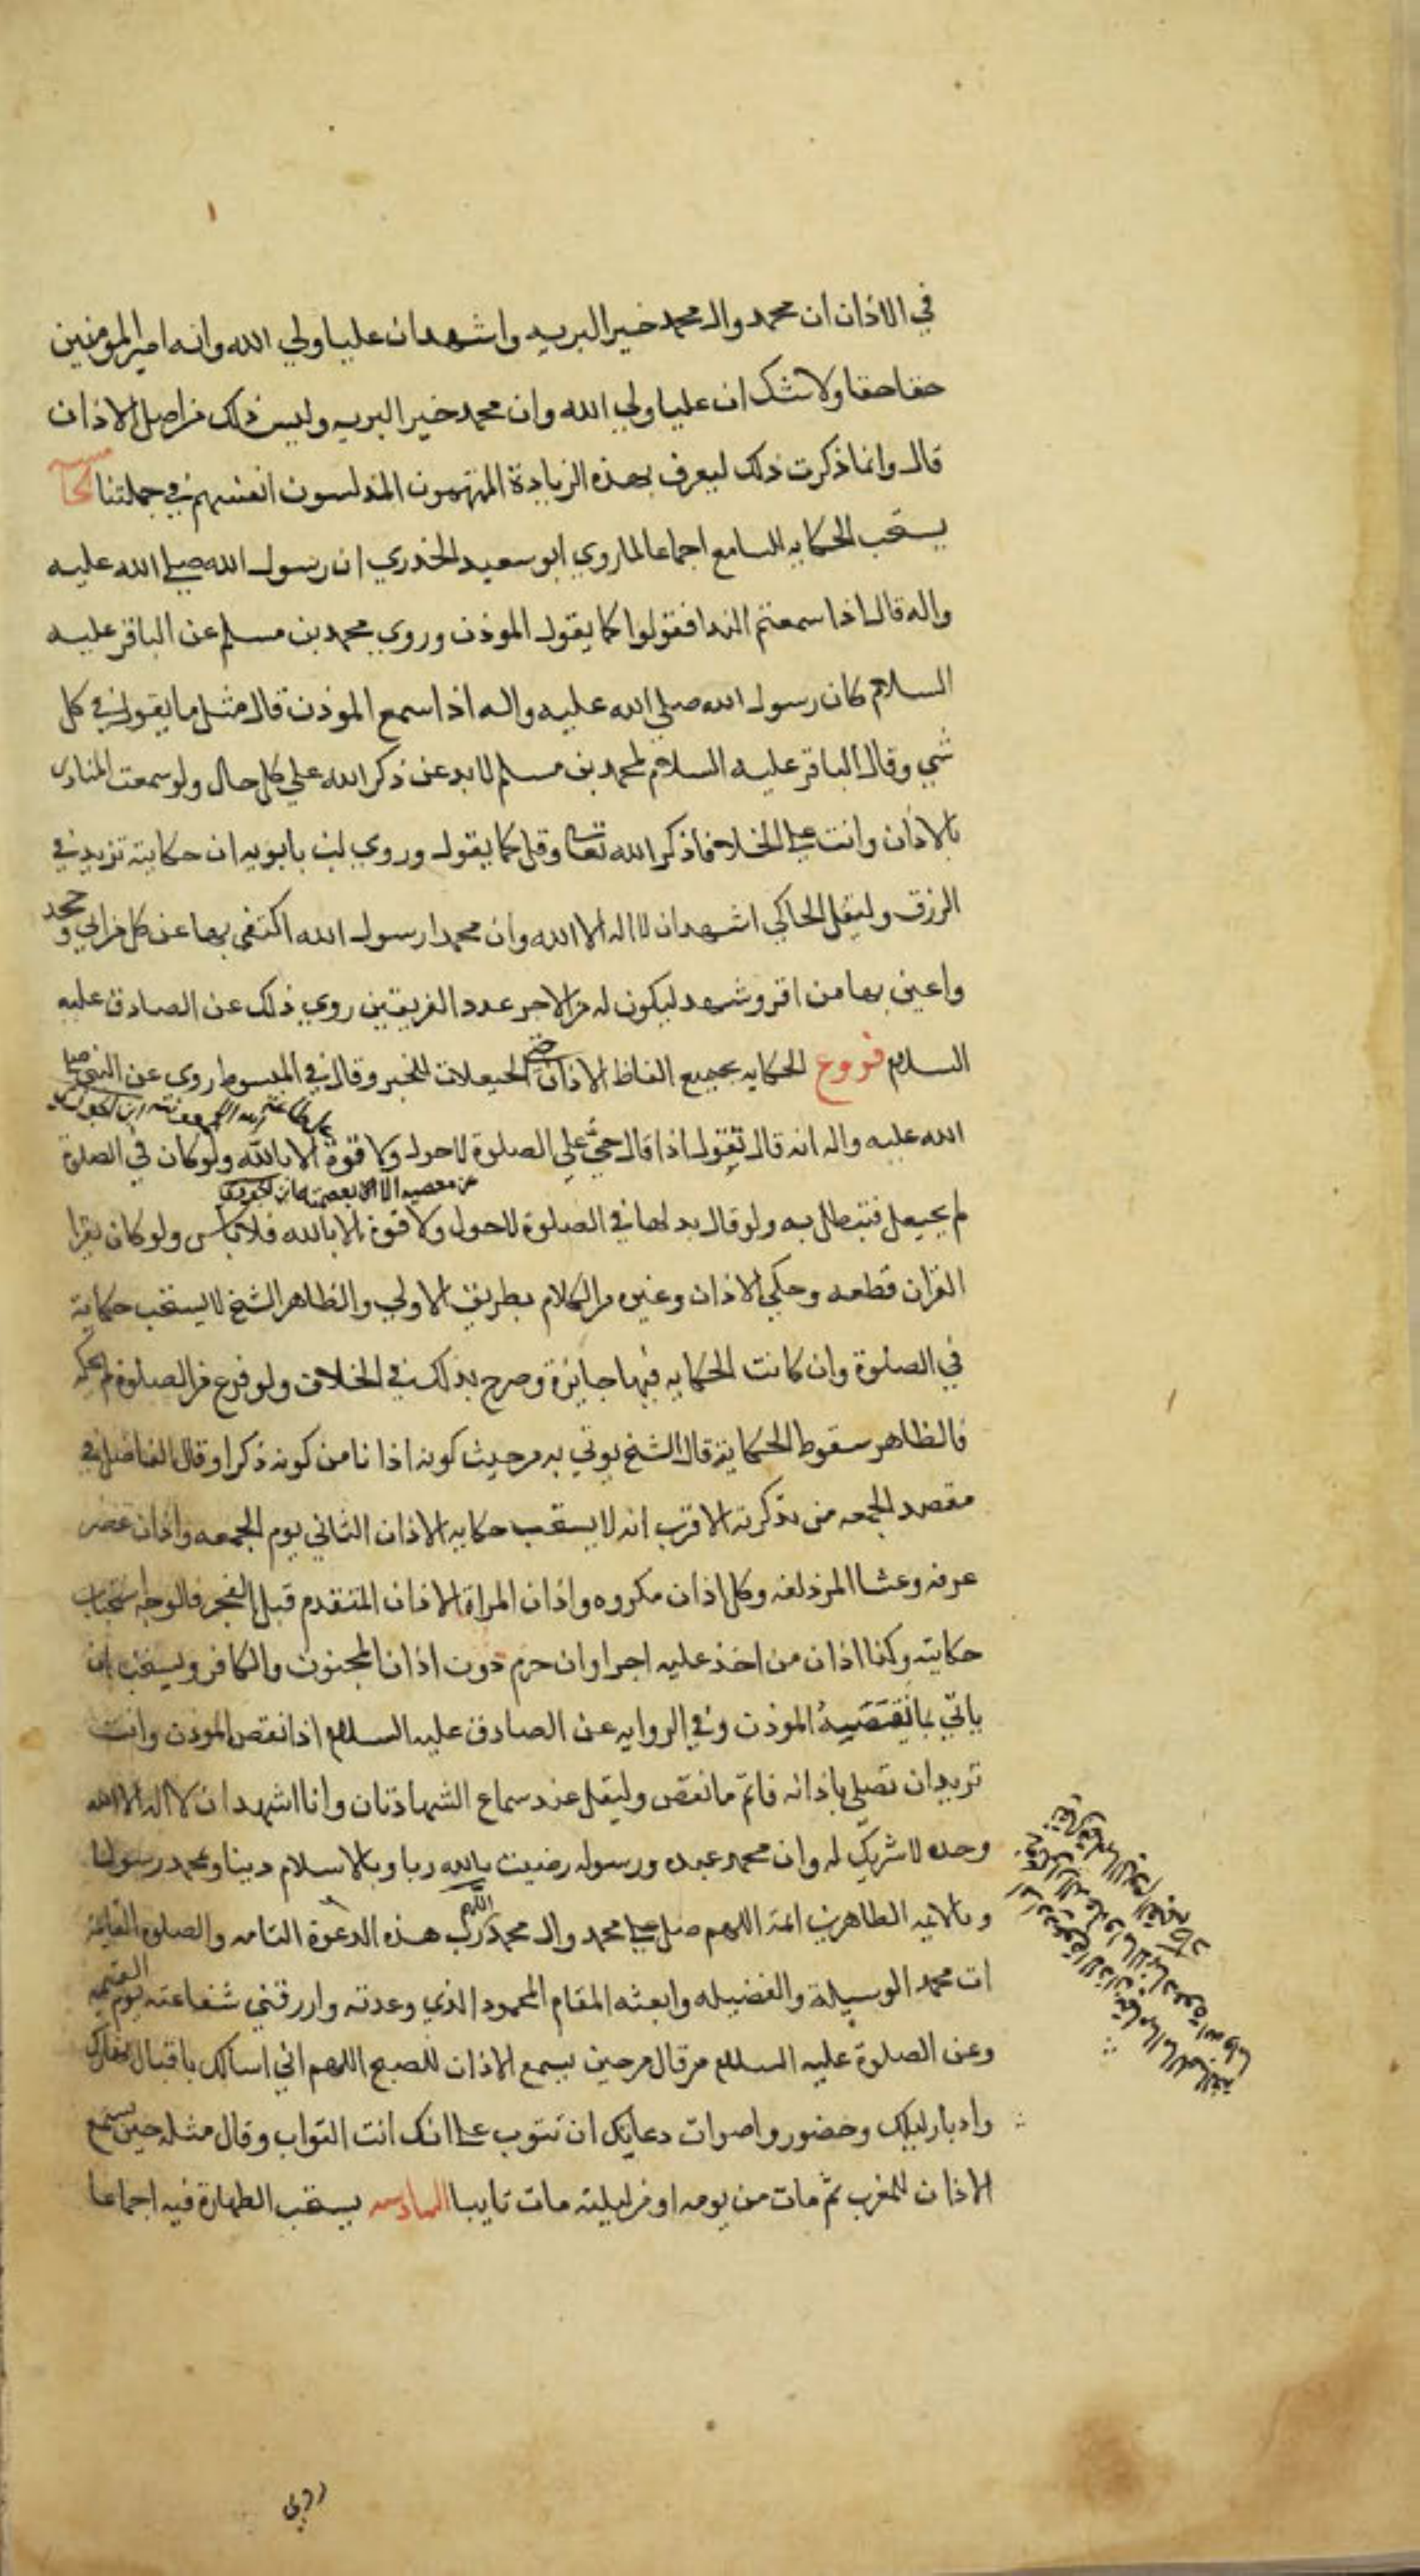 في الاذان ان محمد وال محمد خير البريه واشهد ان عليا ولي الله وانه امير المومنين
حقا حقا ولا شك ان عليا ولي الله وان محمد خير البريه وليس ذلك من اصل الاذان
قال وانما ذكرت ذلك ليعرف بهذه الزيادة المتهمون المدلسون انفسهم في جملتنا
يستحب الحكايه للسامع اجماعا لما روي ابو سعيد الخدري ان رسول الله صلي الله عليه
واله قال اذا سمعتم الندا فقولوا كما يقول الموذن وروي محمد بن مسلم عن الباقر عليه
السلام كان رسول الله صلي الله عليه واله اذا سمع الموذن قال مثل ما يقول في كل
شي وقال الباقر عليه السلام لمحمد بن مسلم لا بد عن ذكر الله علي كل حال ولو سمعت المنادي
بالاذان وانت علي الخلا فاذكر الله تعا وقل كما يقول وروي ابن بابويه ان حكايته تزيد في
الرزق وليقل الحاكي اشهد ان لا اله الا الله وان محمدا رسول الله اكتفي بها عن كل من ابي وجحد
واعين بها من اقر وشهد ليكون له من الاجر عدد الفريقين روي ذلك عن الصادق عليه
السلام فروع الحكايه بجميع الفاظ الاذان حتي الحيعلات للخبر وقال في المبسوط روي عن النبي صلي
الله عليه واله انه قال تقول اذا قال حي علي الصلوة لا حول ولا قوة الا بالله ولو كان في الصلوة
لم يحيعل فتبطل به ولو قال بدلها في الصلوة لا حول ولا قوة الا بالله فلا باس ولو كان يقرا
القران قطعه وحكي الاذان وغيره من الكلام بطريق الاولي والظاهر الشيخ لا يستحب حكايته
في الصلوة وان كانت الحكايه فيها جايزة وصرح بذلك في الخلاف ولو فرغ من الصلوة لم يحكه
فالظاهر سقوط الحكاية قال الشيخ يوتي به من حيث كونه اذانا من كونه ذكرا وقال الفاضل في
مقصد الجمعه من تذكرته الاقرب انه لا يستحب حكايه الاذان الثاني يوم الجمعه واذان عصر
عرفه وعشا المزدلفه وكل اذان مكروه واذان المراة الاذان المتقدم قبل الفجر فالوجه استحباب
حكايته وكذا اذان من اخذ عليه اجرا وان حرم دون اذان المجنون والكافر ويستحب ان
ياتي بما نقصه الموذن وفي الروايه عن الصادق عليه السلام اذا نقص الموذن وانت
تريد ان تصلي باذانه فاتم ما نقص وليقل عند سماع الشهادتان وانا اشهد ان لا اله الا الله
وحده لا شريك له وان محمد عبده ورسوله رضيت بالله ربا وبالاسلام دينا وبمحمد رسولا
وبالايمه الطاهرين ايمة اللهم صل علي محمد وال محمد اللهم رب هذه الدعوة التامه والصلوة القايمة
ات محمد الوسيلة والفضيله وابعثه المقام المحمود الذي وعدته وارزقني شفاعته يوم القيمه
وعن الصلوة عليه السلام من قال من حين يسمع الاذان للصبح اللهم اني اسالك باقبال نهارك
وادبار ليلك وحضور واصوات دعايك ان تتوب علي انك انت التواب وقال مثله حين يسمع
الاذان للمغرب ثم مات من يومه او من ليلته مات تايبا السادسه يستحب الطهارة فيه اجماعا
روي